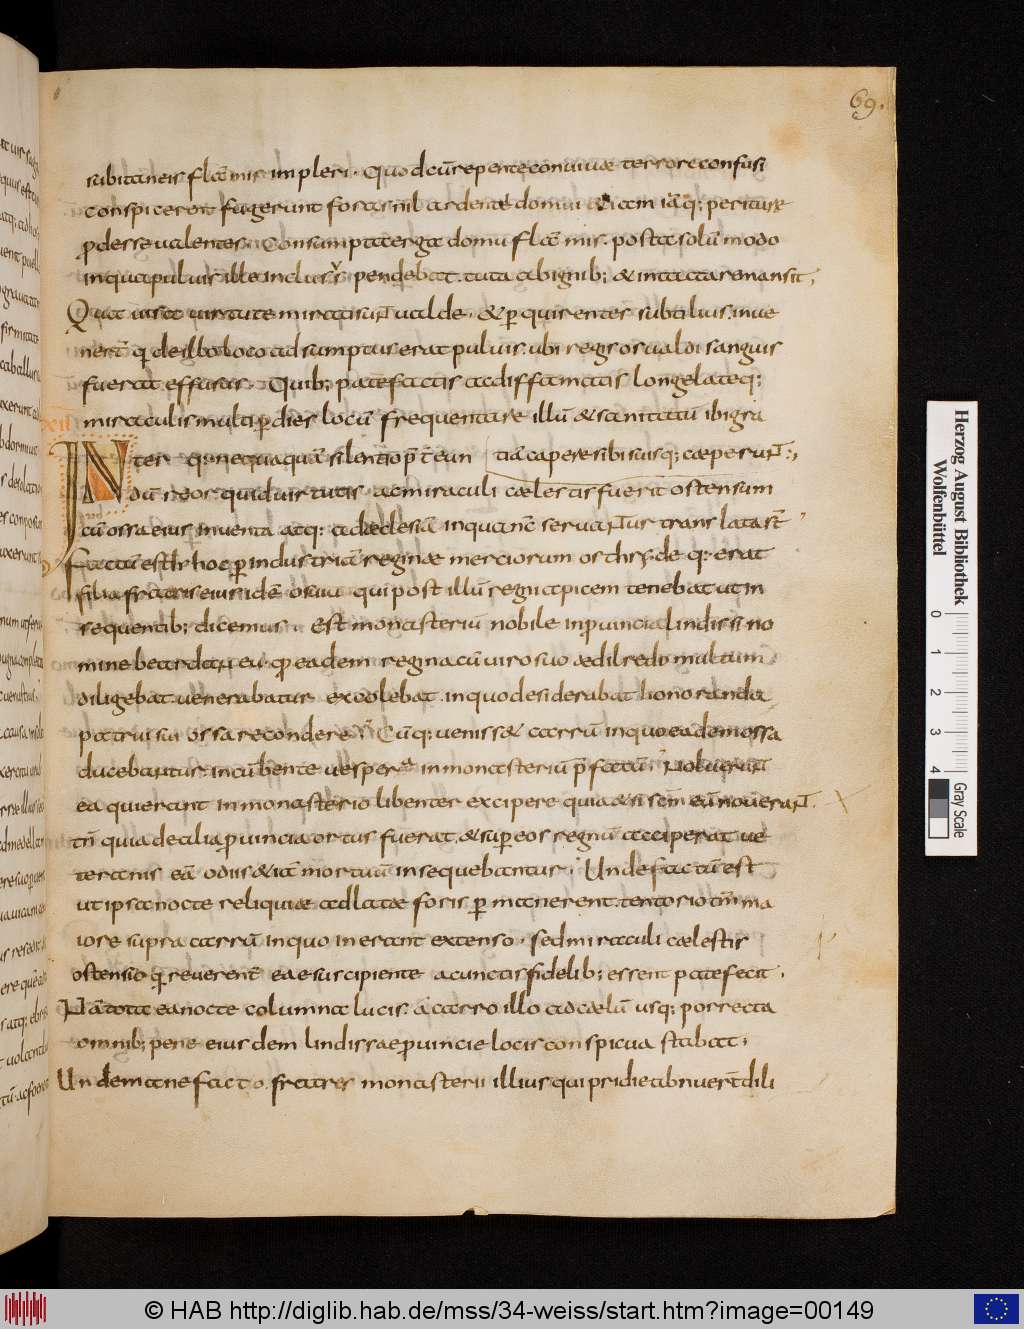 69.
subitaneis flāmis impleri. Quod cū repente conuiuae terrore confusi
conspicerent fugerunt foras nil ardente domui & iam iāq; periturae
ꝓdesse ualentes. Consumpta ergo domu flāmis. posta solū modo
in qua puluis ille inclusꝰ pendebat. tuta ab ignib; & intacta remansit;
Qua uisa uirtute mirati suꝛ̄ ualde. & ꝑquirentes subtilius. inue
nerť qđ de illo loco adsumptus erat puluis. ubi regis osualdi sanguis
fuerat effusus. Quib; patefactis ac diffamatis longe lateq;
miraculis multi ꝑ dies locū frequentare illū & sanitatū ibi gra
XII
tiā capere sibi suisq; caeperuꝛ̄:,
INter q: nequaquā silentio p̄t̄eun
dū reor. quid uirtutis ac miraculi caelestis fuerit ostensum
cū ossa eius inuenta atq: ad aeclesiā in qua nc̄ seruaꝛ̄ur translata sť
Factū est hoc ꝑ industriā reginae merciorum osthryde q: erat
filia fratris eius idē osuiu qui post illū regni apicem tenebat ut in
sequentib; dicemus. Est monasteriū nobile in ꝓuincia lindissi no
mine beardaneu. qđ eadem regina cū uiro suo aedilredo multum
diligebat. uenerabatur excolebat. in quo desiderabat honoranda
patrui sui ossa recondere. Cūq; uenisset carrū in quo eadem ossa
ducebantur. incūbente uespera in monasteriū p̄fatū. Noluerunt
ea qui erant in monasterio libenter excipere quia & si scm̄ eū nouerant.
tn̄ quia de alia ꝓuincia ortus fuerat. & sup eos regnū acciperat ue
teranis eū odiis & iā mortuū insequebantur. Unde factū est
ut ipsa nocte reliquiae adlatae foris ꝑmanerent. tentorio tm̄ ma
iore supra carrū in quo inerant extenso. sed miraculi caelestis
ostensio qđ reuerenť eae suscipiente a cunctis fidelib; essent patefecit.
Nā tota ea nocte columna lucis. a carro illo ad caelū usq; porrecta
omnib; pene eiusdem lindissae ꝓuincie locis conspicua stabat.
Unde mane facto. fratres monasterii illius qui pridie abnuerť dili
Herzog August Bibliothek
Wolfenbüttel
0 1 2 3 4
Gray Scale
© HAB http://diglib.hab.de/mss/34-weiss/start.htm?image=00149